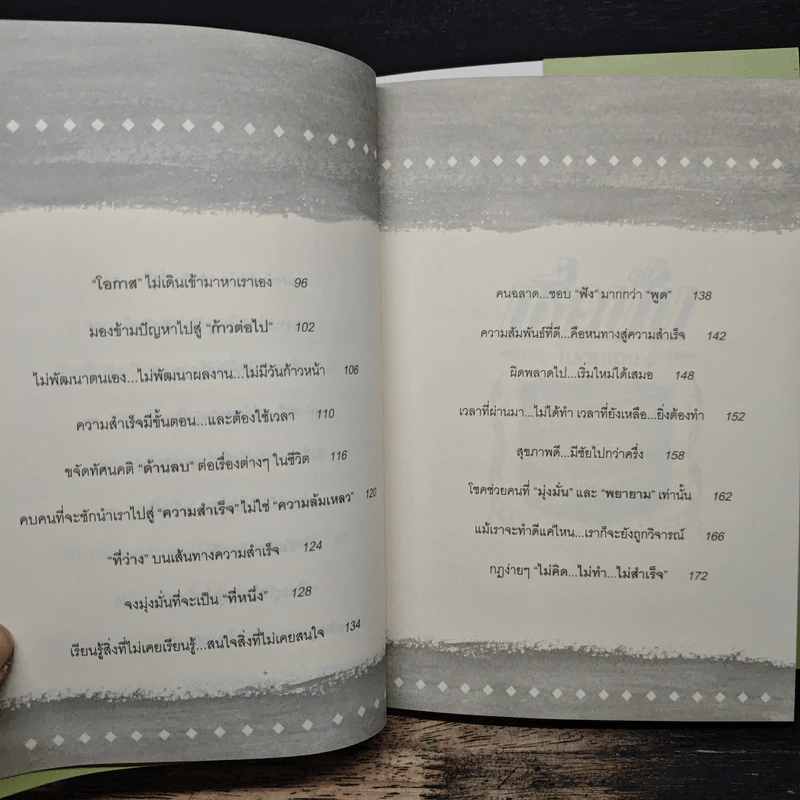 "โอกาส" ไม่เดินเข้ามาหาเราเอง 96
มองข้ามปัญหาไปสู่ "ก้าวต่อไป" 102
ไม่พัฒนาตนเอง...ไม่พัฒนาผลงาน...ไม่มีวันก้าวหน้า 106
ความสำเร็จมีขั้นตอน...และต้องใช้เวลา 110
ขจัดทัศนคติ "ด้านลบ" ต่อเรื่องต่างๆ ในชีวิต 116
คบคนที่จะชักนำเราไปสู่ "ความสำเร็จ" ไม่ใช่ "ความล้มเหลว" 120
"ที่ว่าง" บนเส้นทางความสำเร็จ 124
จงมุ่งมั่นที่จะเป็น "ที่หนึ่ง" 128
เรียนรู้สิ่งที่ไม่เคยเรียนรู้...สนใจสิ่งที่ไม่เคยสนใจ 134
คนฉลาด...ชอบ "ฟัง" มากกว่า "พูด" 138
ความสัมพันธ์ที่ดี...คือหนทางสู่ความสำเร็จ 142
ผิดพลาดไป...เริ่มใหม่ได้เสมอ 148
เวลาที่ผ่านมา...ไม่ได้ทำ เวลาที่ยังเหลือ...ยิ่งต้องทำ 152
สุขภาพดี...มีชัยไปกว่าครึ่ง 158
โชคช่วยคนที่ "มุ่งมั่น" และ "พยายาม" เท่านั้น 162
แม้เราจะทำดีแค่ไหน...เราก็จะยังถูกวิจารณ์ 166
กฎง่ายๆ "ไม่คิด...ไม่ทำ...ไม่สำเร็จ" 172